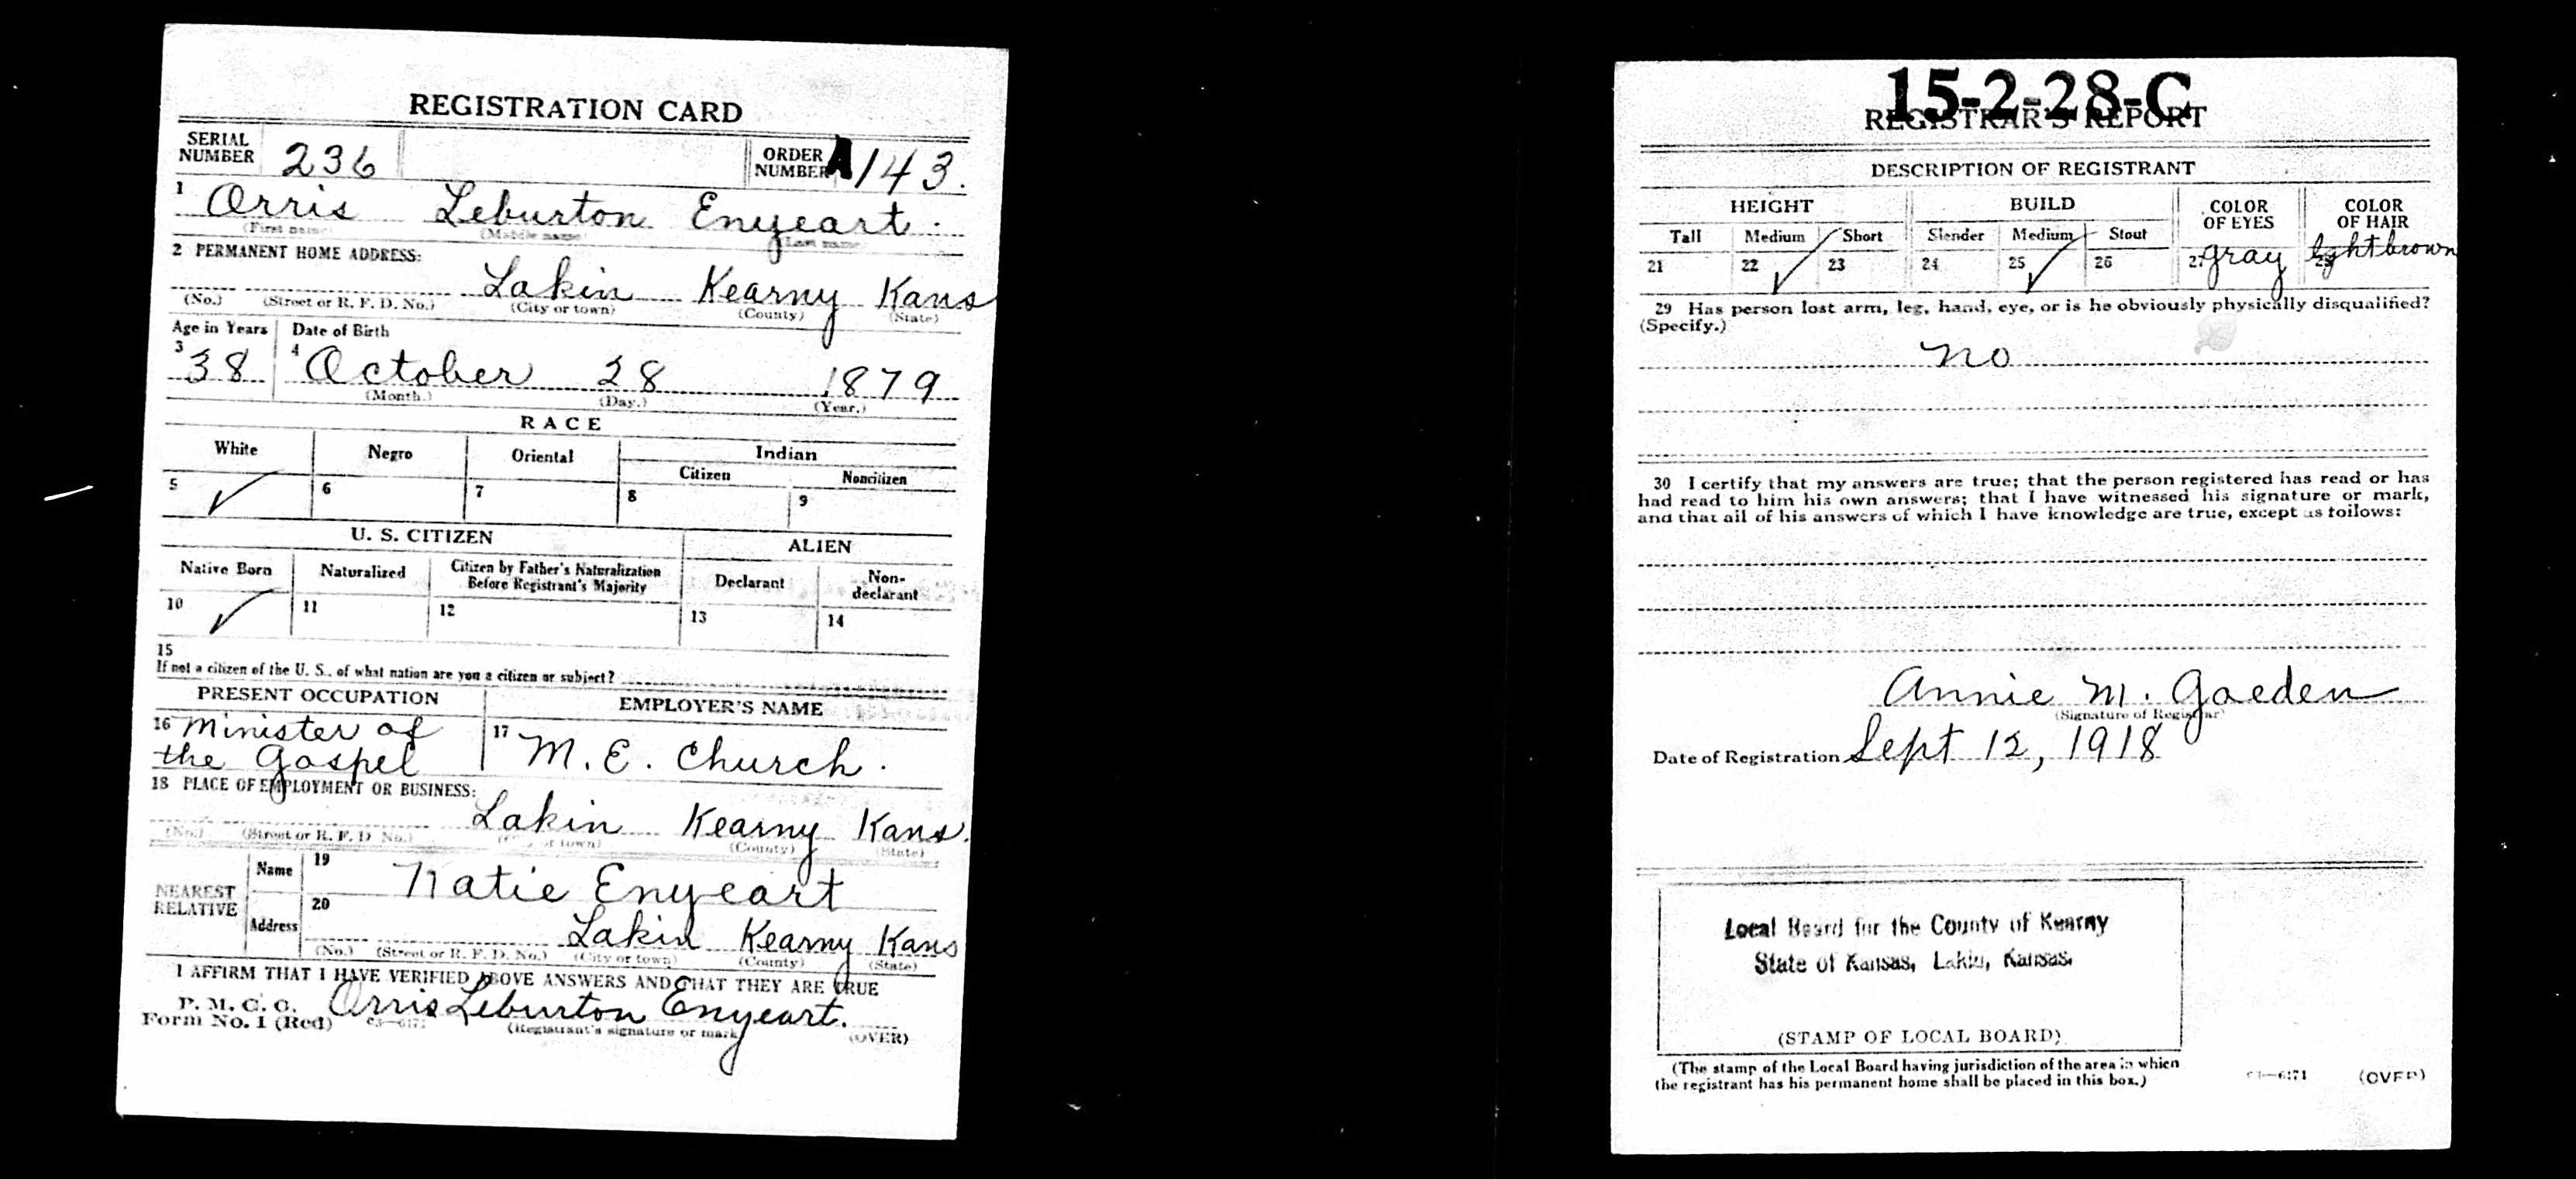 REGISTRATION CARD
SERIAL NUMBER 236 ORDER NUMBER A 143.
1 Orris Leburton Enyeart.
(First name) (Middle name) (Last name)
2 PERMANENT HOME ADDRESS:
Lakin Kearny Kans
(No.) (Street or R. F. D. No.) (City or town) (County) (State)
Age in Years Date of Birth
3 38 4 October 28 1879
(Month.) (Day.) (Year.)
RACE
White Negro Oriental Indian
Citizen Noncitizen
5 ✓ 6 7 8 9
U. S. CITIZEN ALIEN
Native Born Naturalized Citizen by Father's Naturalization Before Registrant's Majority Declarant Non-declarant
10 ✓ 11 12 13 14
15
If not a citizen of the U. S., of what nation are you a citizen or subject?
PRESENT OCCUPATION EMPLOYER'S NAME
16 Minister of the Gospel 17 M. E. Church.
18 PLACE OF EMPLOYMENT OR BUSINESS:
Lakin Kearny Kans.
(No.) (Street or R. F. D. No.) (City or town) (County) (State)
NEAREST RELATIVE
Name 19 Katie Enyeart
Address 20 Lakin Kearny Kans
(No.) (Street or R. F. D. No.) (City or town) (County) (State)
I AFFIRM THAT I HAVE VERIFIED ABOVE ANSWERS AND THAT THEY ARE TRUE
P. M. G. O.
Form No. 1 (Red) Orris Leburton Enyeart.
(Registrant's signature or mark) (OVER)
15-2-28-C
REGISTRAR'S REPORT
DESCRIPTION OF REGISTRANT
HEIGHT BUILD COLOR OF EYES COLOR OF HAIR
Tall Medium Short Slender Medium Stout
21 22 ✓ 23 24 25 ✓ 26 27 gray light brown
29 Has person lost arm, leg, hand, eye, or is he obviously physically disqualified?
(Specify.)
no
30 I certify that my answers are true; that the person registered has read or has
had read to him his own answers; that I have witnessed his signature or mark,
and that all of his answers of which I have knowledge are true, except as follows:
Annie M. Goeden
(Signature of Registrar)
Date of Registration Sept 12, 1918
Local Board for the County of Kearny
State of Kansas, Lakin, Kansas.
(STAMP OF LOCAL BOARD)
(The stamp of the Local Board having jurisdiction of the area in which
the registrant has his permanent home shall be placed in this box.)
(OVER)